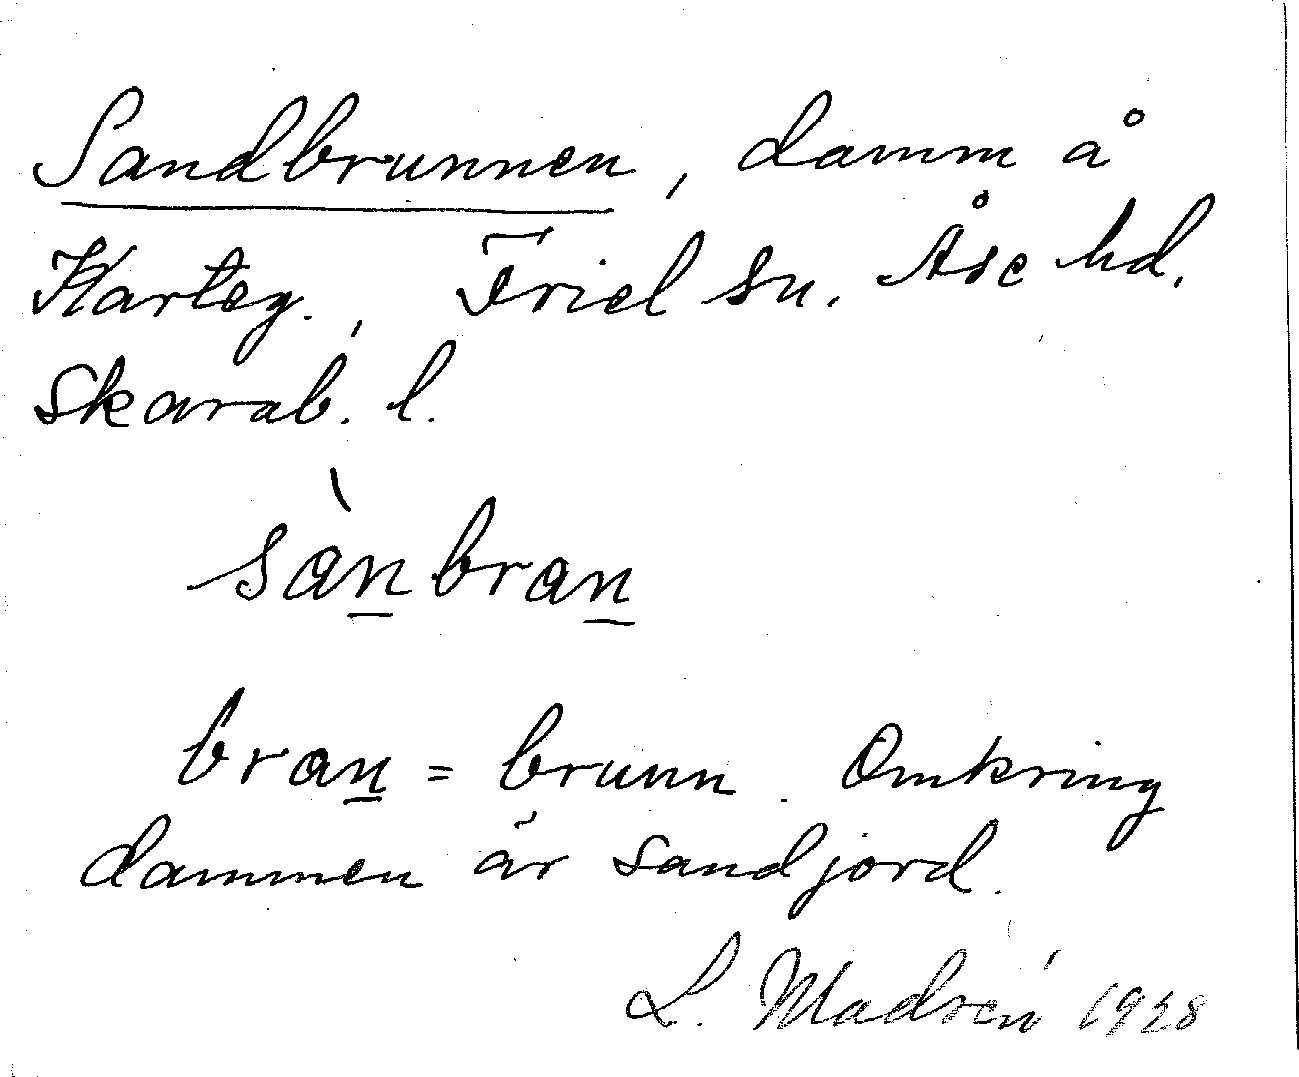 Sandbrunnen, damm å
Karteg., Friel sn. Åse hd.
Skarab. l.
sàn̲bran̲
bran̲ = brunn. Omkring
dammen är sandjord.
L. Madsén 1928